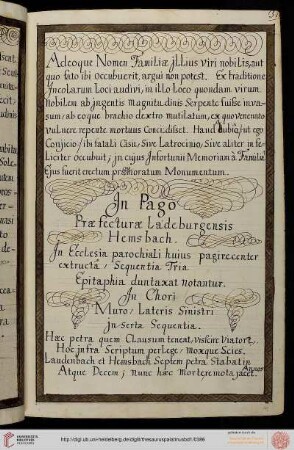 Adeoque Nomen Familiæ jllius Viri nobilis, aut
quo fato ibi occubuerit, argui non potest. Ex traditione
Jncolarum Loci audivi, in illo Loco quondam virum
Nobilem ab jngentis magnitudinis Serpente fuisse inva-
sum, ab eoque brachio dextro mutilatum, ex quo venenato
vulnere repente mortuus Concidisset. Haud dubiè, ut ego
Conjicio, ibi fatali Casu, Sive Latrocinio, Sive aliter in fe-
liciter occubuit, in cujus Jnfortunii Memoriam à Familia
Ejus fuerit erectum præmoratum Monumentum.
Jn Pago
Præfecturæ Ladeburgensis
Hemsbach.
Jn Ecclesia parochiali huius pagi recenter
extructa, Sequentia Tria
Epitaphia duntaxat notantur.
Jn Chori
Muro, Lateris Sinistri
Jnserta Sequentia.
Hæc petra quem Clausum teneat, viscire Viator,
Hoc infra Scriptum perlege, Moxque Scies.
Laudenbach et Hemsbach Septem petra Stabat in Annos
Atque Decem, nunc hac Morte remota jacet.
http://digi.ub.uni-heidelberg.de/diglit/thesauruspalatinusbd1/0386